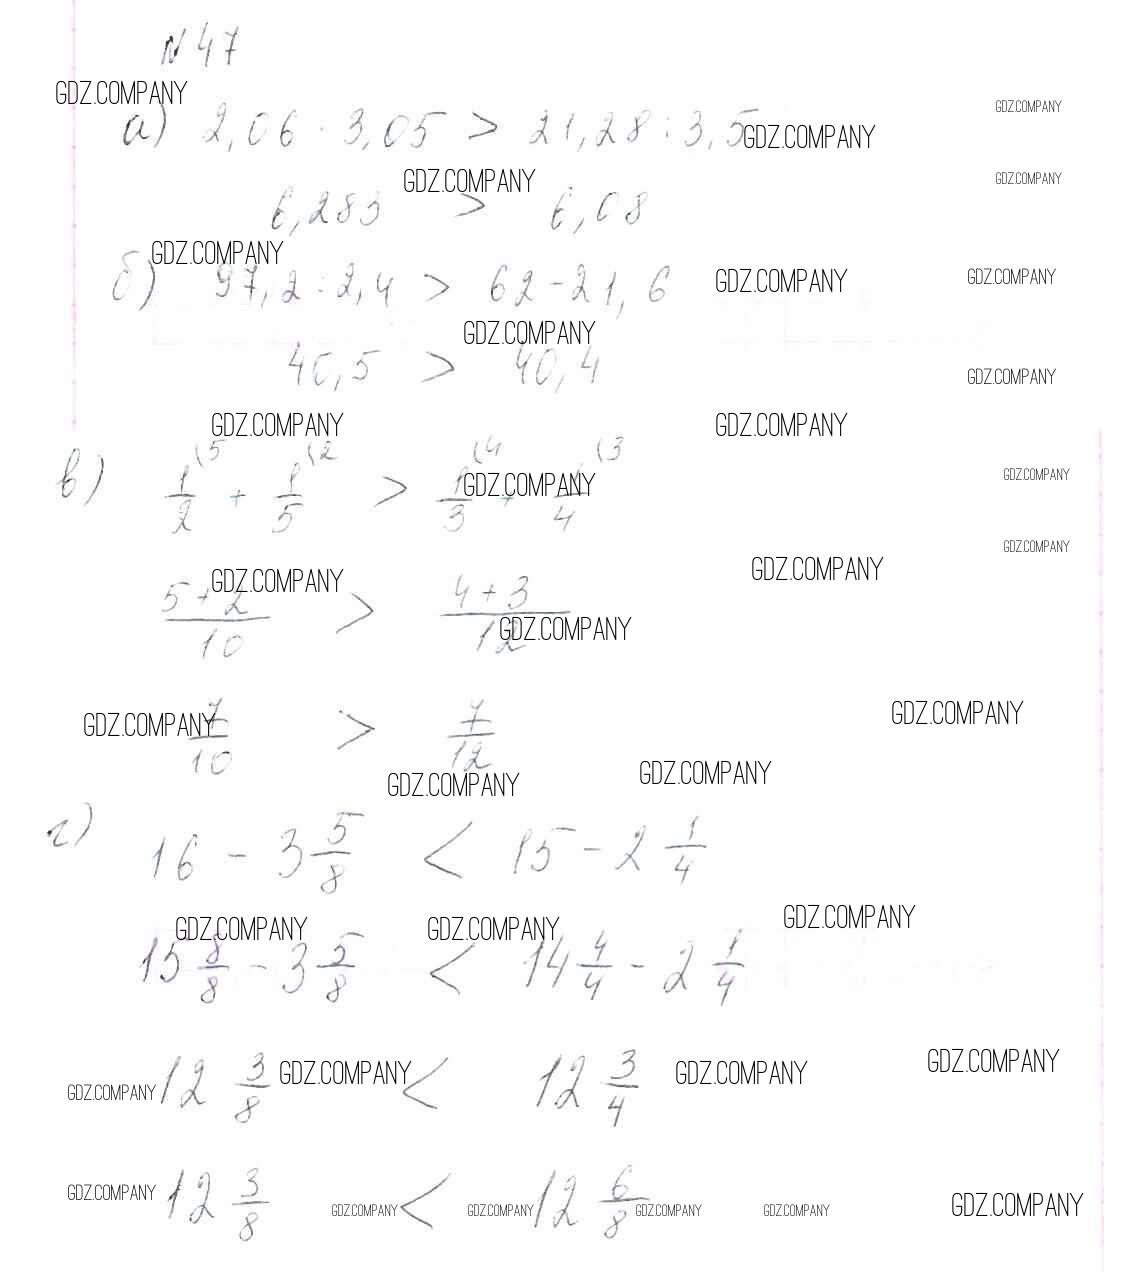 N 47
GDZ.COMPANY
GDZ.COMPANY
а) 2,06 · 3,05 > 21,28 : 3,5
GDZ.COMPANY
GDZ.COMPANY
GDZ.COMPANY
6,283 > 6,08
GDZ.COMPANY
б) 97,2 : 2,4 > 62 - 21,6
GDZ.COMPANY
GDZ.COMPANY
GDZ.COMPANY
40,5 > 40,4
GDZ.COMPANY
GDZ.COMPANY
GDZ.COMPANY
в) 1/2 (5 + 1/5 (2 > 1/3 (4 + 1/4 (3
GDZ.COMPANY
GDZ.COMPANY
GDZ.COMPANY
GDZ.COMPANY
GDZ.COMPANY
5+2/10 > 4+3/12
GDZ.COMPANY
GDZ.COMPANY
GDZ.COMPANY
7/10 > 7/12
GDZ.COMPANY
GDZ.COMPANY
г) 16 - 3 5/8 < 15 - 2 1/4
GDZ.COMPANY
GDZ.COMPANY
GDZ.COMPANY
15 8/8 - 3 5/8 < 14 4/4 - 2 1/4
GDZ.COMPANY
GDZ.COMPANY
GDZ.COMPANY
GDZ.COMPANY
12 3/8 < 12 3/4
GDZ.COMPANY
12 3/8 < 12 6/8
GDZ.COMPANY
GDZ.COMPANY
GDZ.COMPANY
GDZ.COMPANY
GDZ.COMPANY